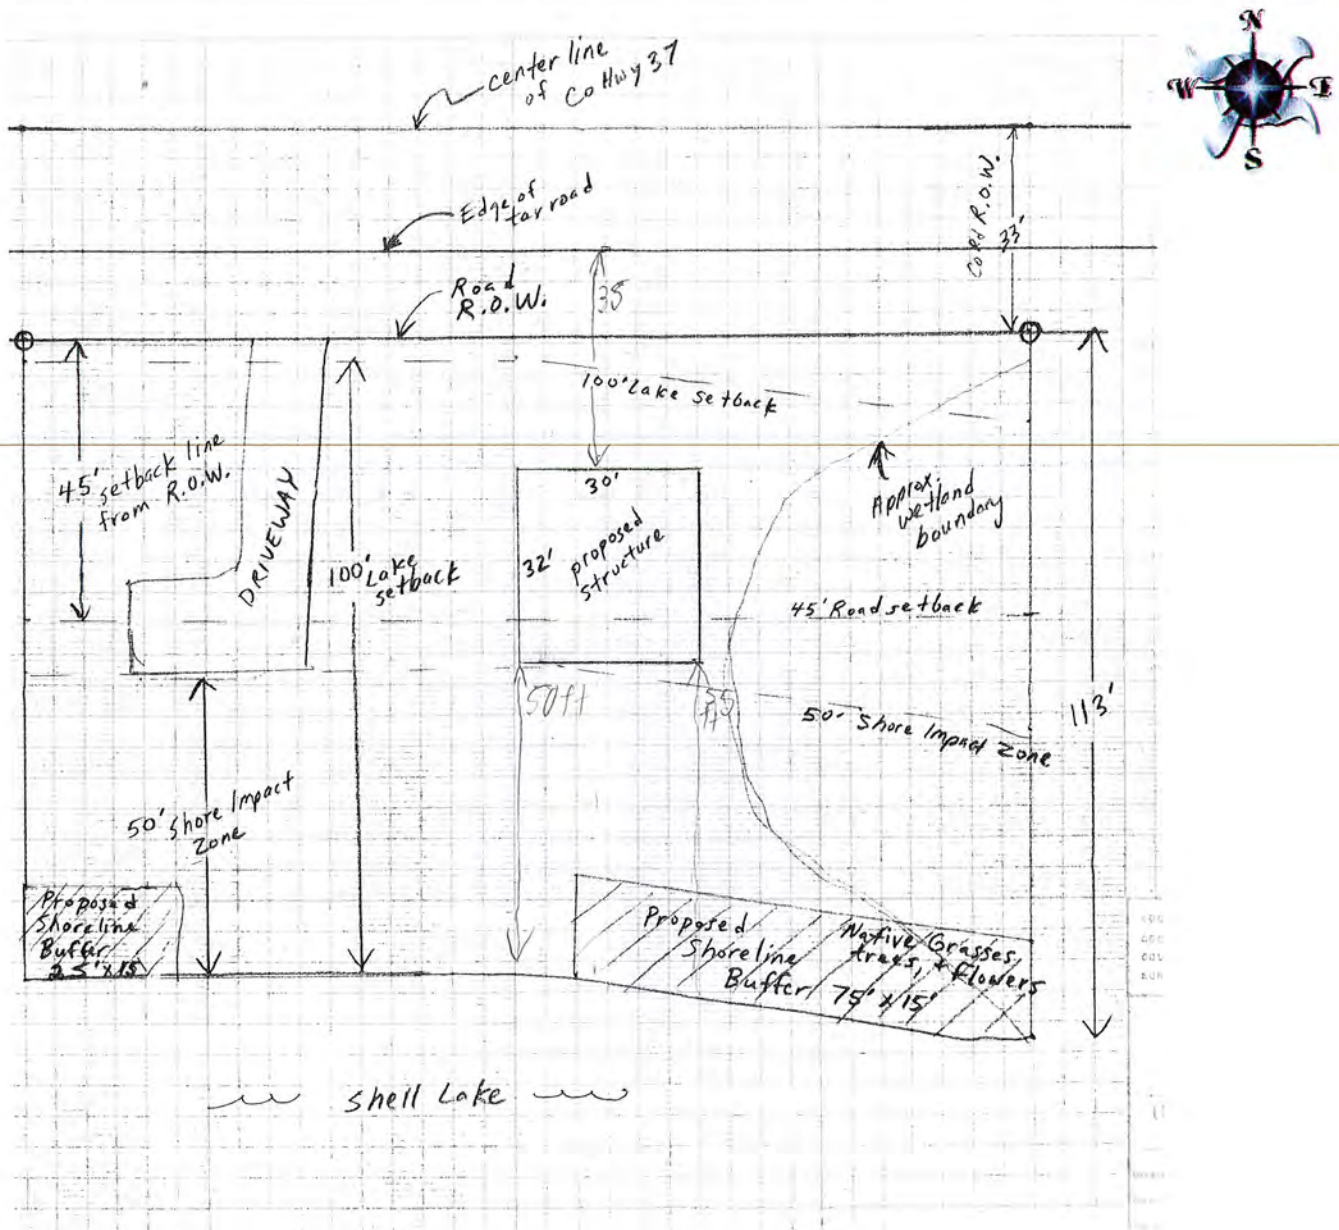 N
W E
S
center line
of Co Hwy 37
Edge of
tar road
Co Rd R.O.W.
33'
Road
R.O.W.
35
100' Lake setback
45' setback line
from R.O.W.
DRIVEWAY
100' Lake
setback
30'
32'
proposed
structure
Approx.
wetland
boundary
45' Road setback
50ft
55
ft
50' Shore Impact
Zone
113'
50' Shore Impact
Zone
Proposed
Shoreline
Buffer
25' x 15'
Proposed
Shoreline
Buffer 75' x 15'
Native Grasses,
trees, + flowers
Shell Lake